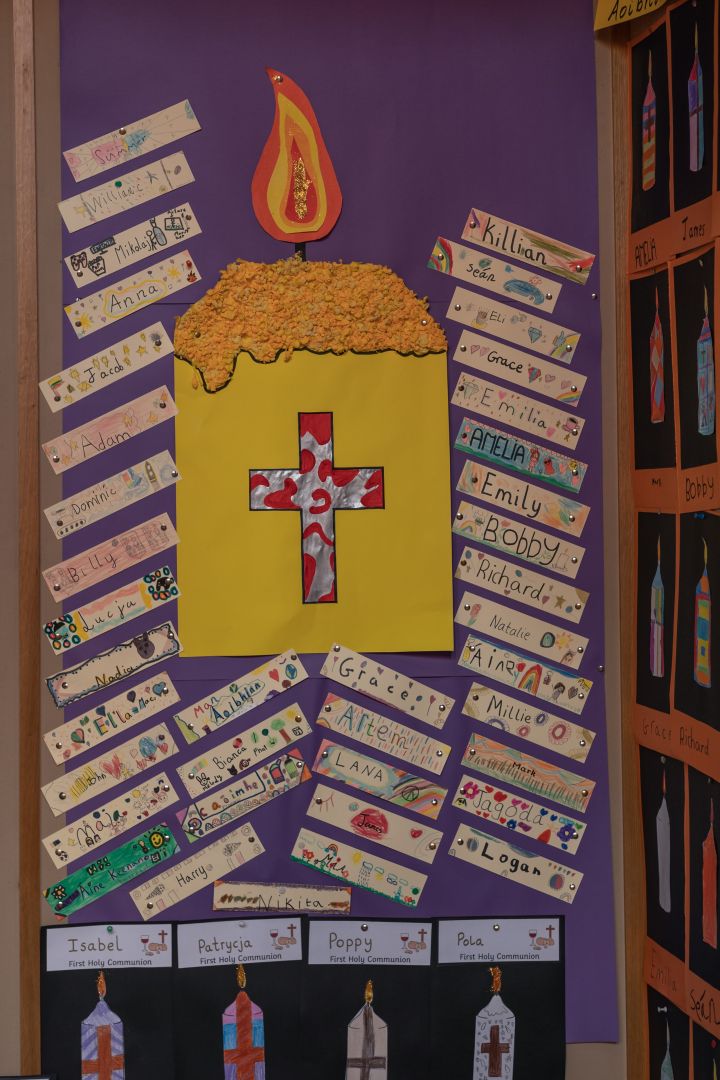 Summer
William
Mikolaj
Anna
Jacob
Adam
Dominic
Billy
Lucja
Nadia
Ella
Maja
Aine Keenan
Aoibhlan
Bianca
Caoimhe
Harry
Nikita
Grace
Artem
LANA
James
Killian
Seán
Eli
Grace
Emilia
AMELIA
Emily
Bobby
Richard
Natalie
Millie
Mark
Jagoda
Logan
Isabel
First Holy Communion
Patrycja
First Holy Communion
Poppy
First Holy Communion
Pola
First Holy Communion
AMELIA
James
BOBBY
Grace
Richard
Emilia
Seán